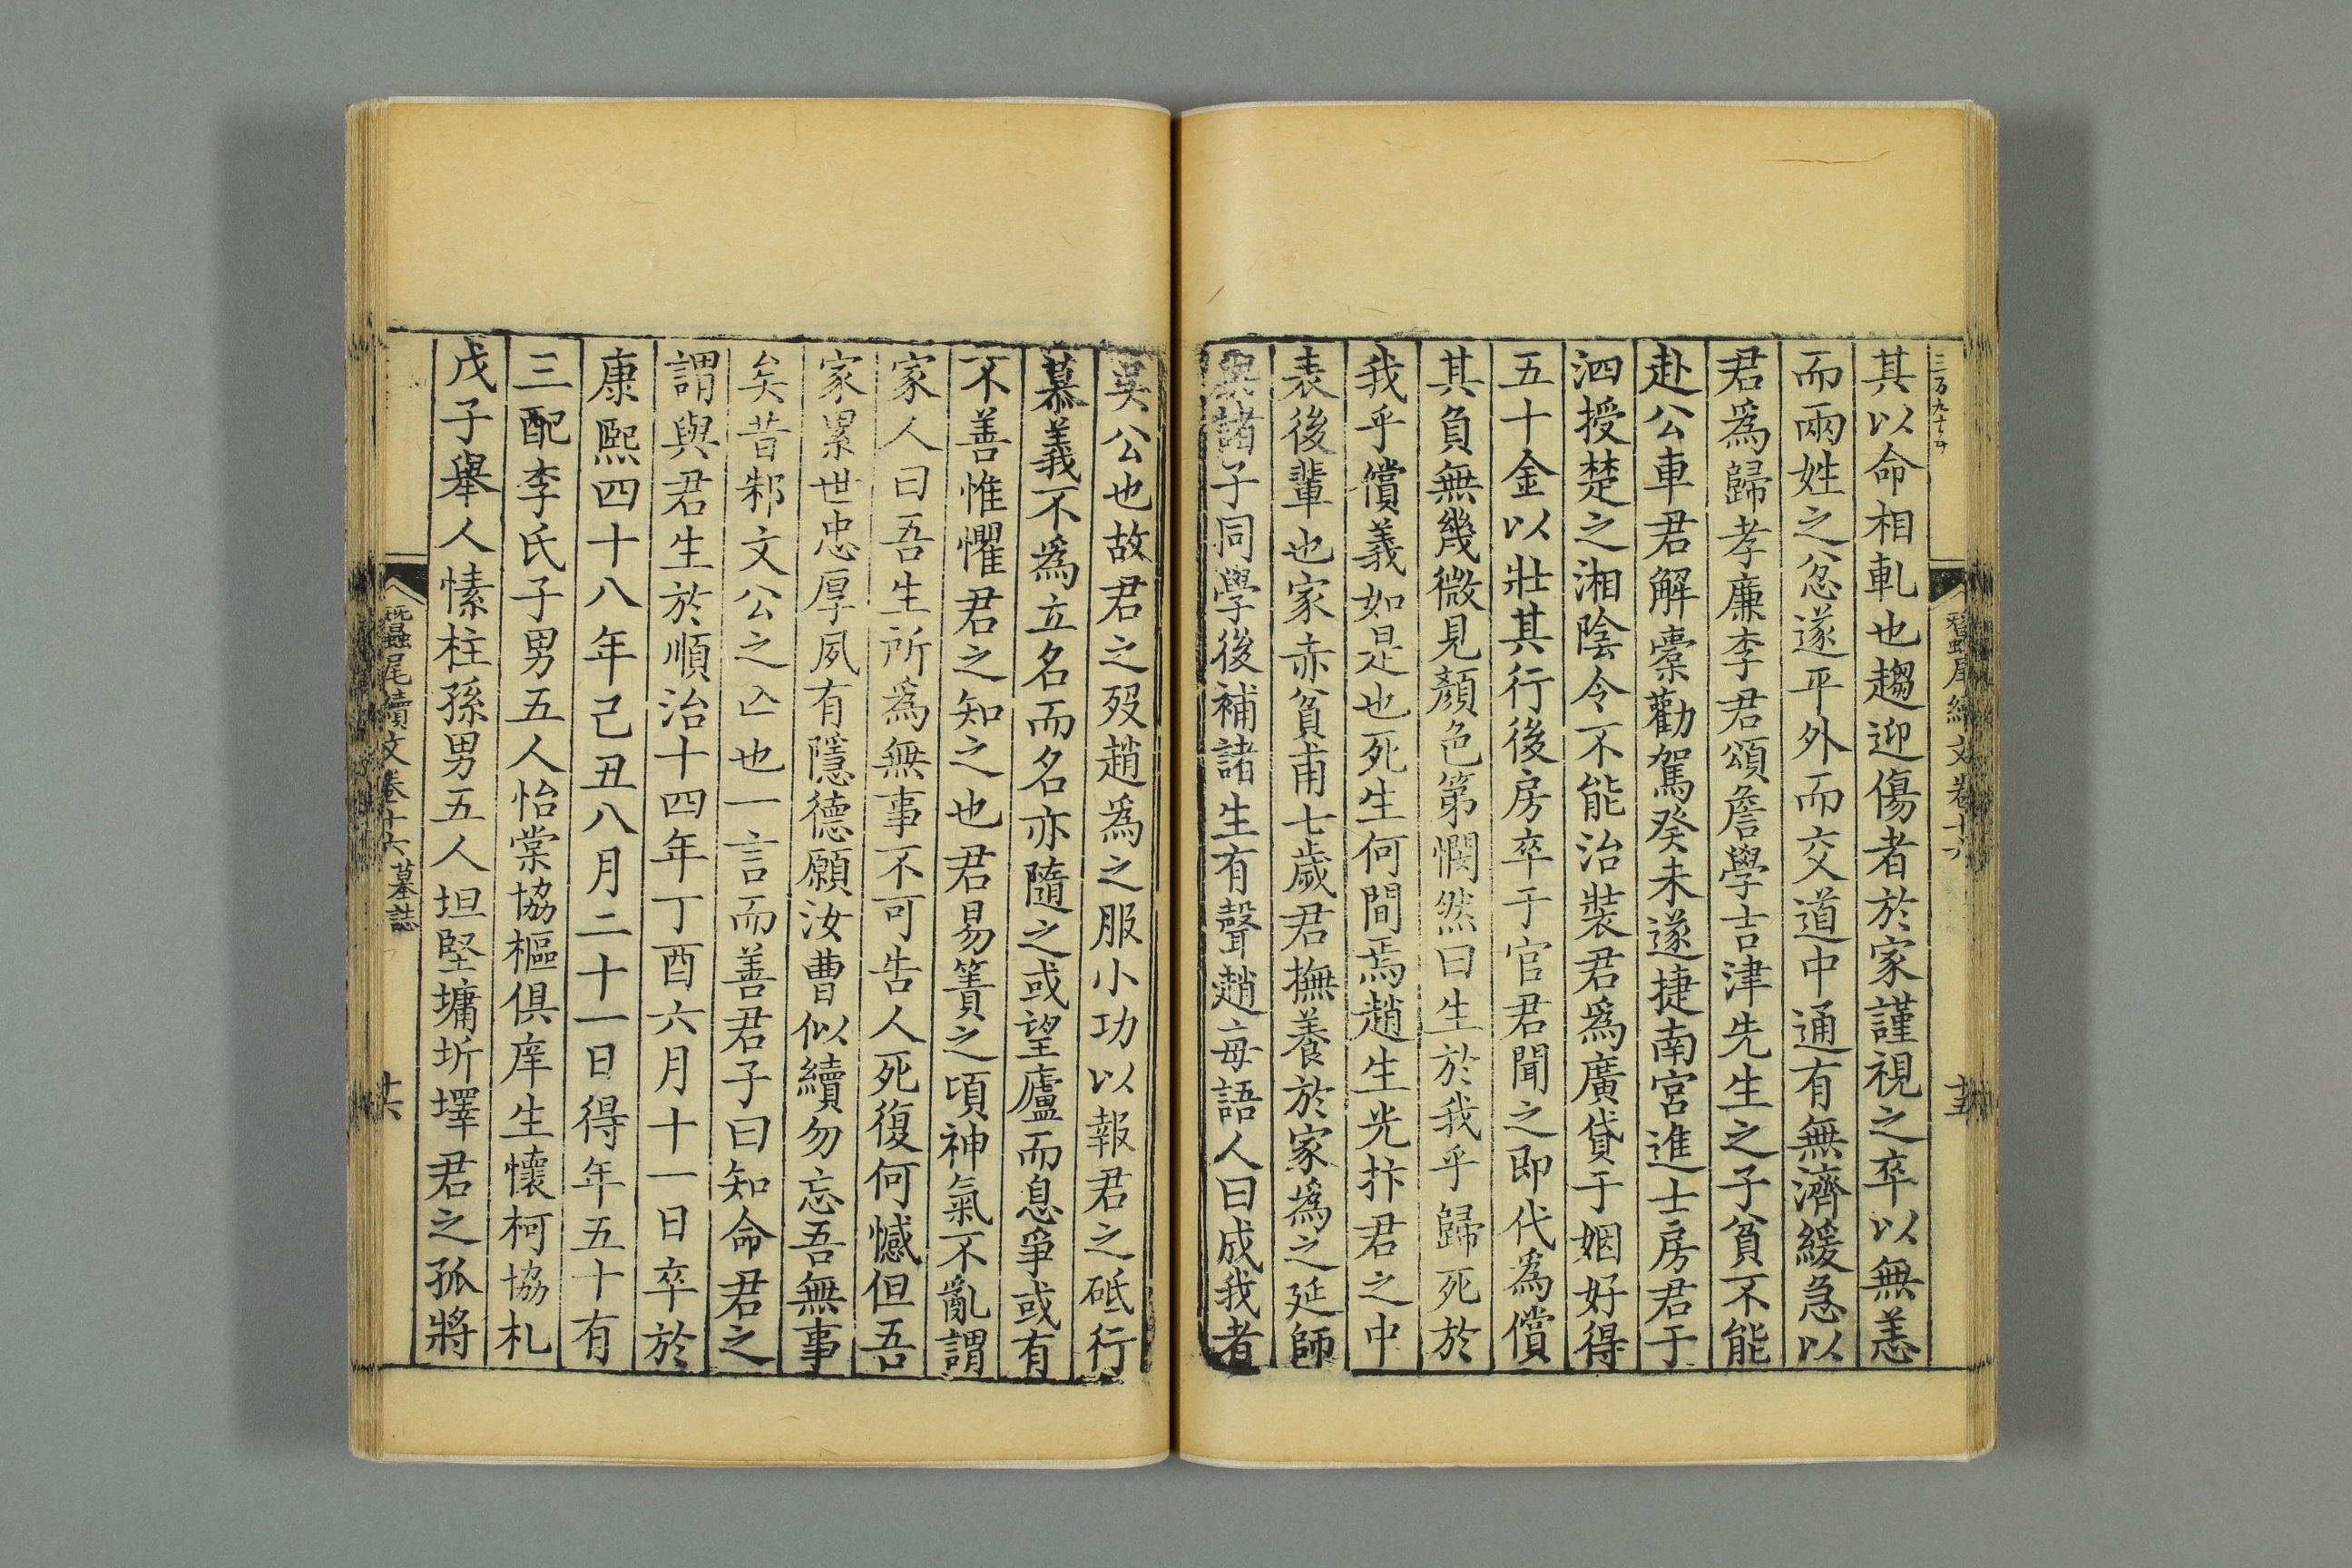 其以命相軋也趨迎傷者於家謹視之卒以無恙
而兩姓之忿遂平外而交道中通有無濟緩急以
君爲歸孝廉李君頌詹學吉津先生之子貧不能
赴公車君解橐勸駕癸未遂捷南宮進士房君于
泗授楚之湘陰令不能治裝君爲廣貸于姻好得
五十金以壯其行後房卒于官君聞之即代爲償
其負無幾微見顏色第憫然曰生於我乎歸死於
我乎償義如是也死生何間焉趙生光抃君之中
表後輩也家赤貧甫七歲君撫養於家爲之延師
與諸子同學後補諸生有聲趙毎語人曰成我者
吳公也故君之殁趙爲之服小功以報君之砥行
慕義不爲立名而名亦隨之或望廬而息爭或有
不善惟懼君之知之也君易簀之頃神氣不亂謂
家人曰吾生所爲無事不可告人死復何憾但吾
家累世忠厚夙有隱德願汝曹似續勿忘吾無事
矣昔邾文公之亾也一言而善君子曰知命君之
謂與君生於順治十四年丁酉六月十一日卒於
康熙四十八年己丑八月二十一日得年五十有
三配李氏子男五人怡棠協樞俱庠生懷柯協札
戊子舉人愫柱孫男五人坦堅墉圻墿君之孤將
蠶尾續文卷十六 墓誌
廿六